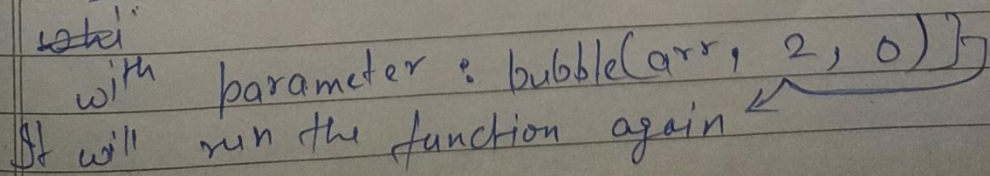 with parameter : bubble(arr, 2, 0)}
It will run the function again